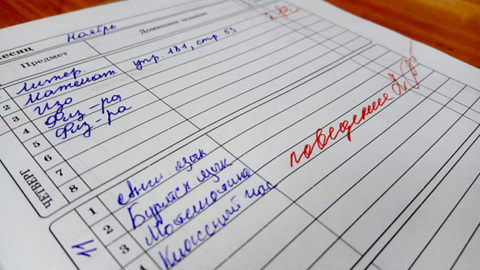 месяц Ноябрь
Предмет Домашнее задание
Литер
2 Математ упр 181, стр. 53
3 Изо
4 Физ-ра
5 Физ-ра
6
7
8
ЧЕТВЕРГ
11
1 Англ язык
2 Бурятск язык
3 Математика
4 Классный час
поведение